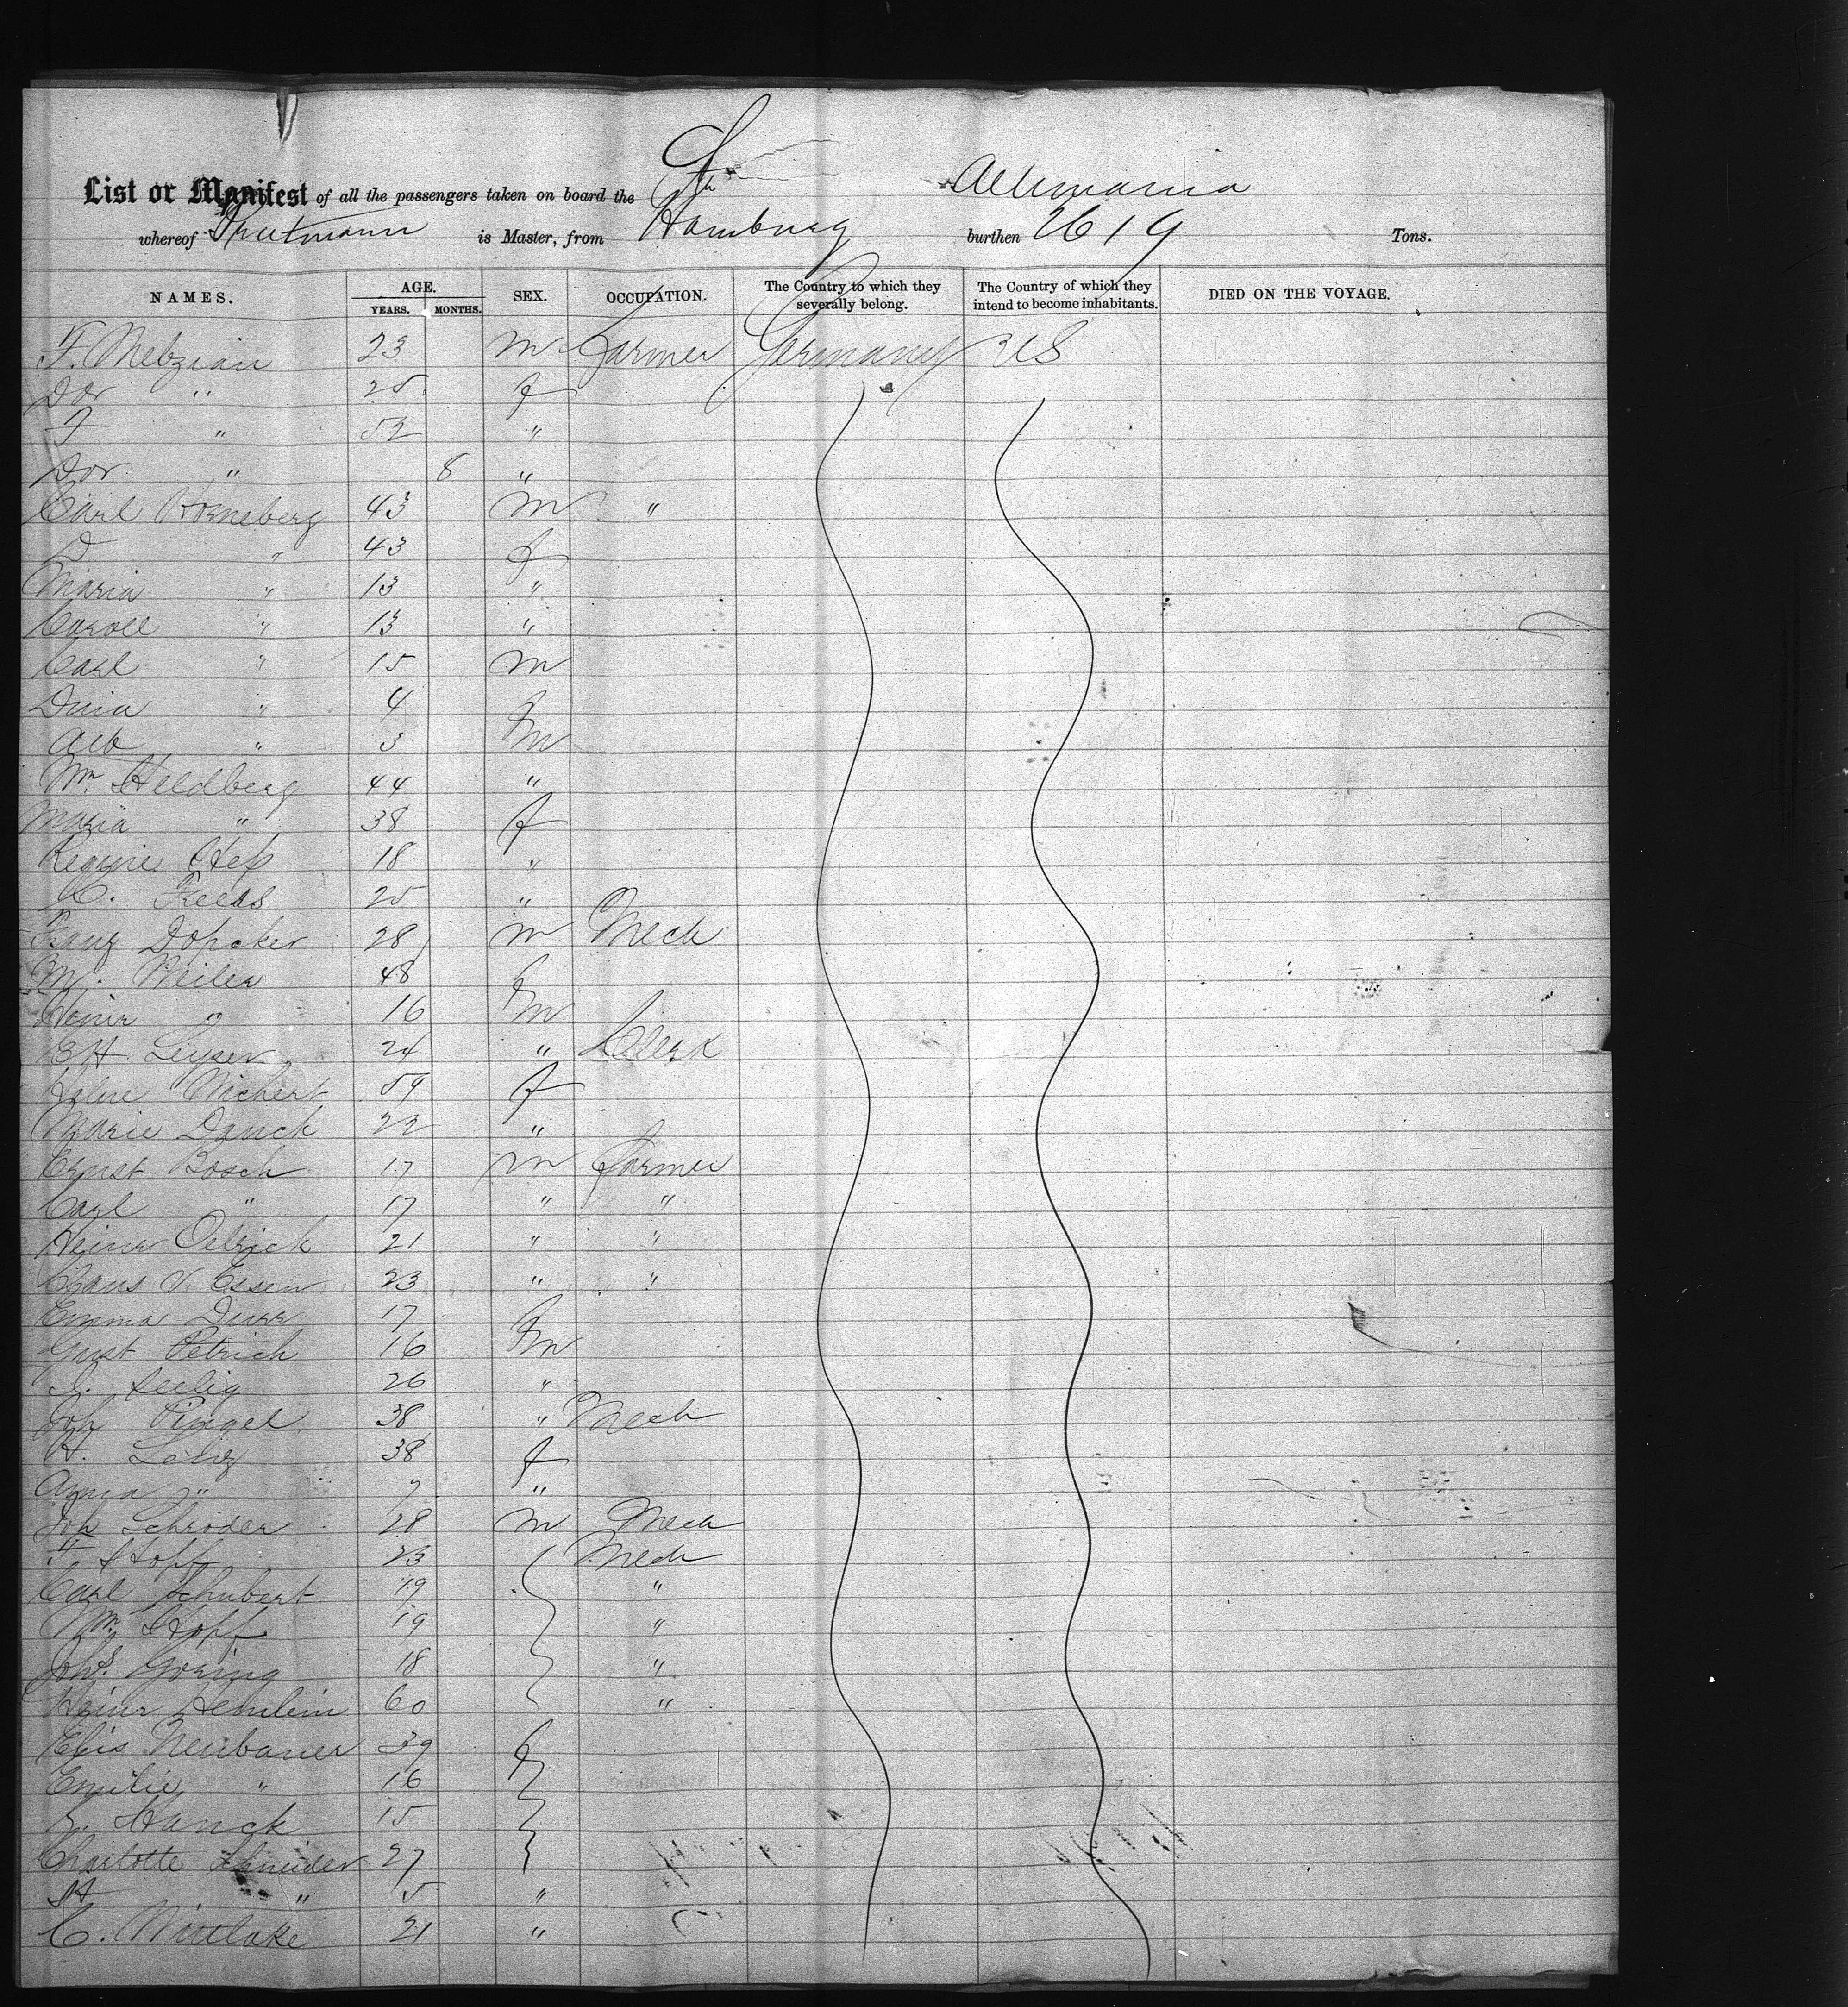 List or Manifest of all the passengers taken on board the Allemania
whereof Trautmann is Master, from Hamburg burthen 2619 Tons.
NAMES. AGE. YEARS. MONTHS. SEX. OCCUPATION. The Country to which they severally belong. The Country of which they intend to become inhabitants. DIED ON THE VOYAGE.
F. Mebzian 23 m Farmer Germany US
Dor " 25 f
F " 52 "
Dor " 8 "
Carl Horneberg 43 m "
D " 43 f
Maria " 13 "
Caroll " 13 "
Carl " 15 m
Dina " 4 f
Alb " 3 m
Wm Heldberg 44 "
Maria " 38 f
Regine Heß 18 "
C. 25 "
Franz Dopcker 28 m Mech
M. Weiler 48 f
Heinr " 16 m
EH Leyser 24 " Clerk
Wichert 59 f
Marie Danck 22 "
Ernst Bosch 17 m Farmer
Carl " 17 " "
Heinr Oelrick 21 " "
Claus V. Essen 23 " "
Emma Durr 17 f
Gust Petrich 16 m
Seelig 26 "
Joh Pingel 38 " Mech
H. Lenz 38 f
Anna " 7 "
Joh Schroder 28 m Mech
Hopf 23 Mech
Carl Schubert 19 "
Wm. Hopf 19 "
Johs. Goring 18 "
Heinr Hemlein 60 "
Elis Neubauer 39 f
Emilie " 16
Hanck 15
Charlotte Schneider 27
H " 5 "
C. Wittlake 21 "